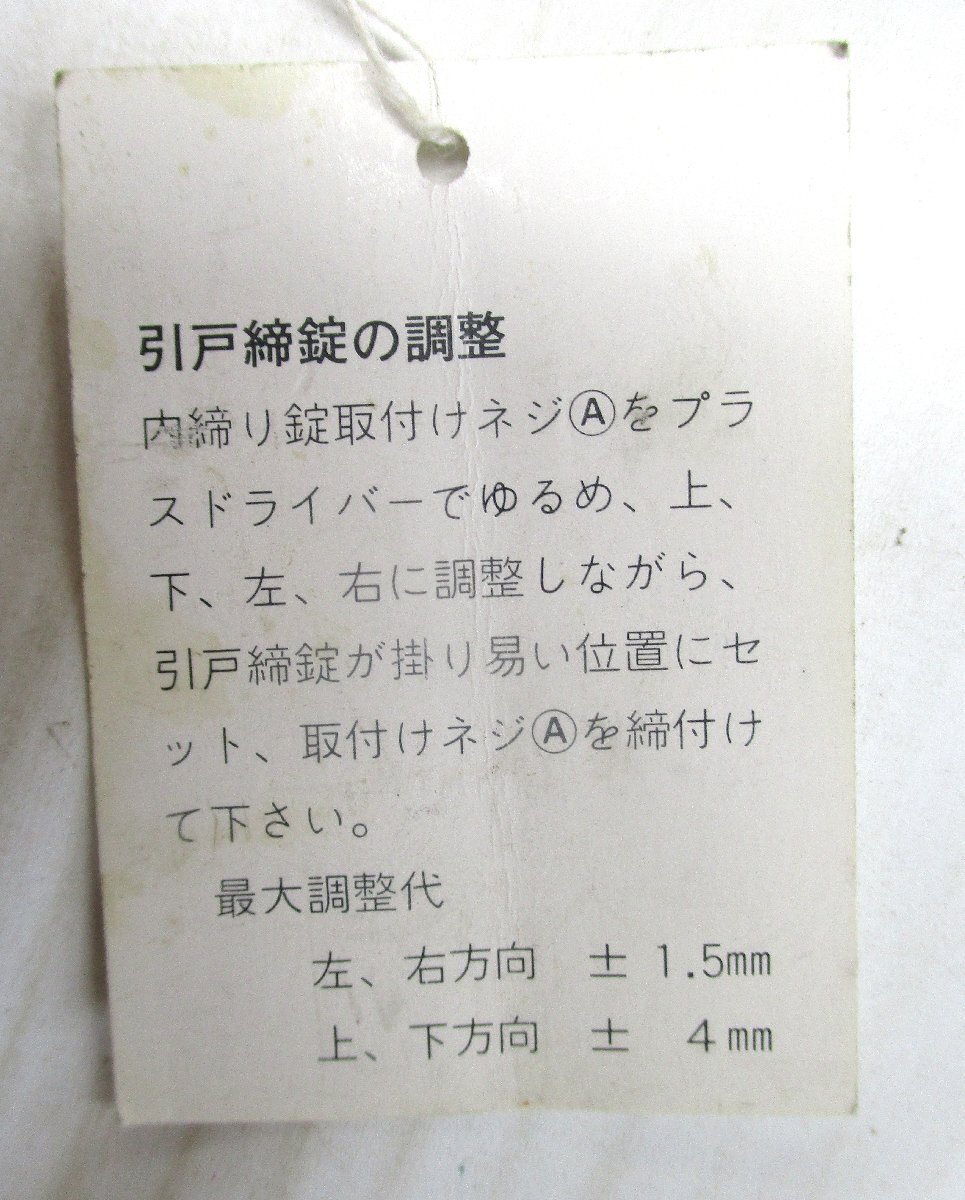 引戸締錠の調整
内締り錠取付けネジⒶをプラ
スドライバーでゆるめ、上、
下、左、右に調整しながら、
引戸締錠が掛り易い位置にセ
ット、取付けネジⒶを締付け
て下さい。
最大調整代
左、右方向 ± 1.5mm
上、下方向 ± 4mm